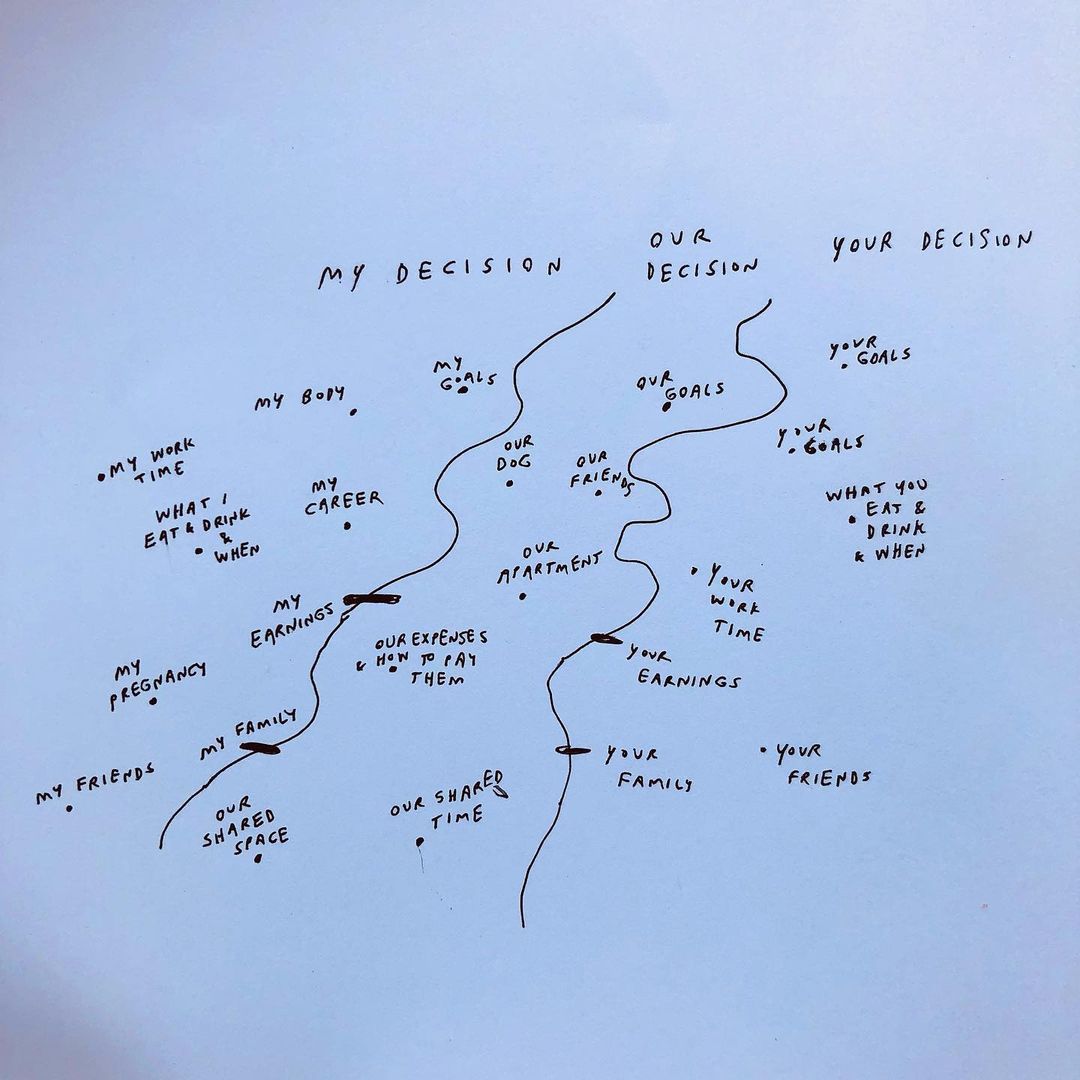 MY DECISION
OUR
DECISION
YOUR DECISION
MY
GOALS
MY BODY
MY WORK
TIME
WHAT I
EAT & DRINK
&
WHEN
MY
CAREER
MY
EARNINGS
MY
PREGNANCY
MY FAMILY
MY FRIENDS
OUR
GOALS
OUR
DOG
OUR
FRIENDS
OUR
APARTMENT
OUR EXPENSES
& HOW TO PAY
THEM
OUR
SHARED
SPACE
OUR SHARED
TIME
YOUR
GOALS
YOUR
GOALS
WHAT YOU
EAT &
DRINK
& WHEN
YOUR
WORK
TIME
YOUR
EARNINGS
YOUR
FAMILY
YOUR
FRIENDS